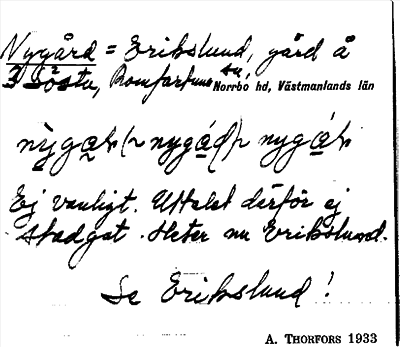 Nygård = Erikslund, gård å
3 Lösta, Romfartuna sn, Norrbo hd, Västmanlands län
nỳga̱
Ej vanligt. Uttalet därför ej
stadgat. Heter nu Erikslund.
Se Erikslund!
A. THORFORS 1933